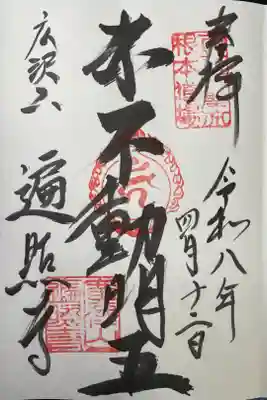 奉拝
根本道場
令和八年
四月十二日
赤不動明王
広沢山
遍照寺